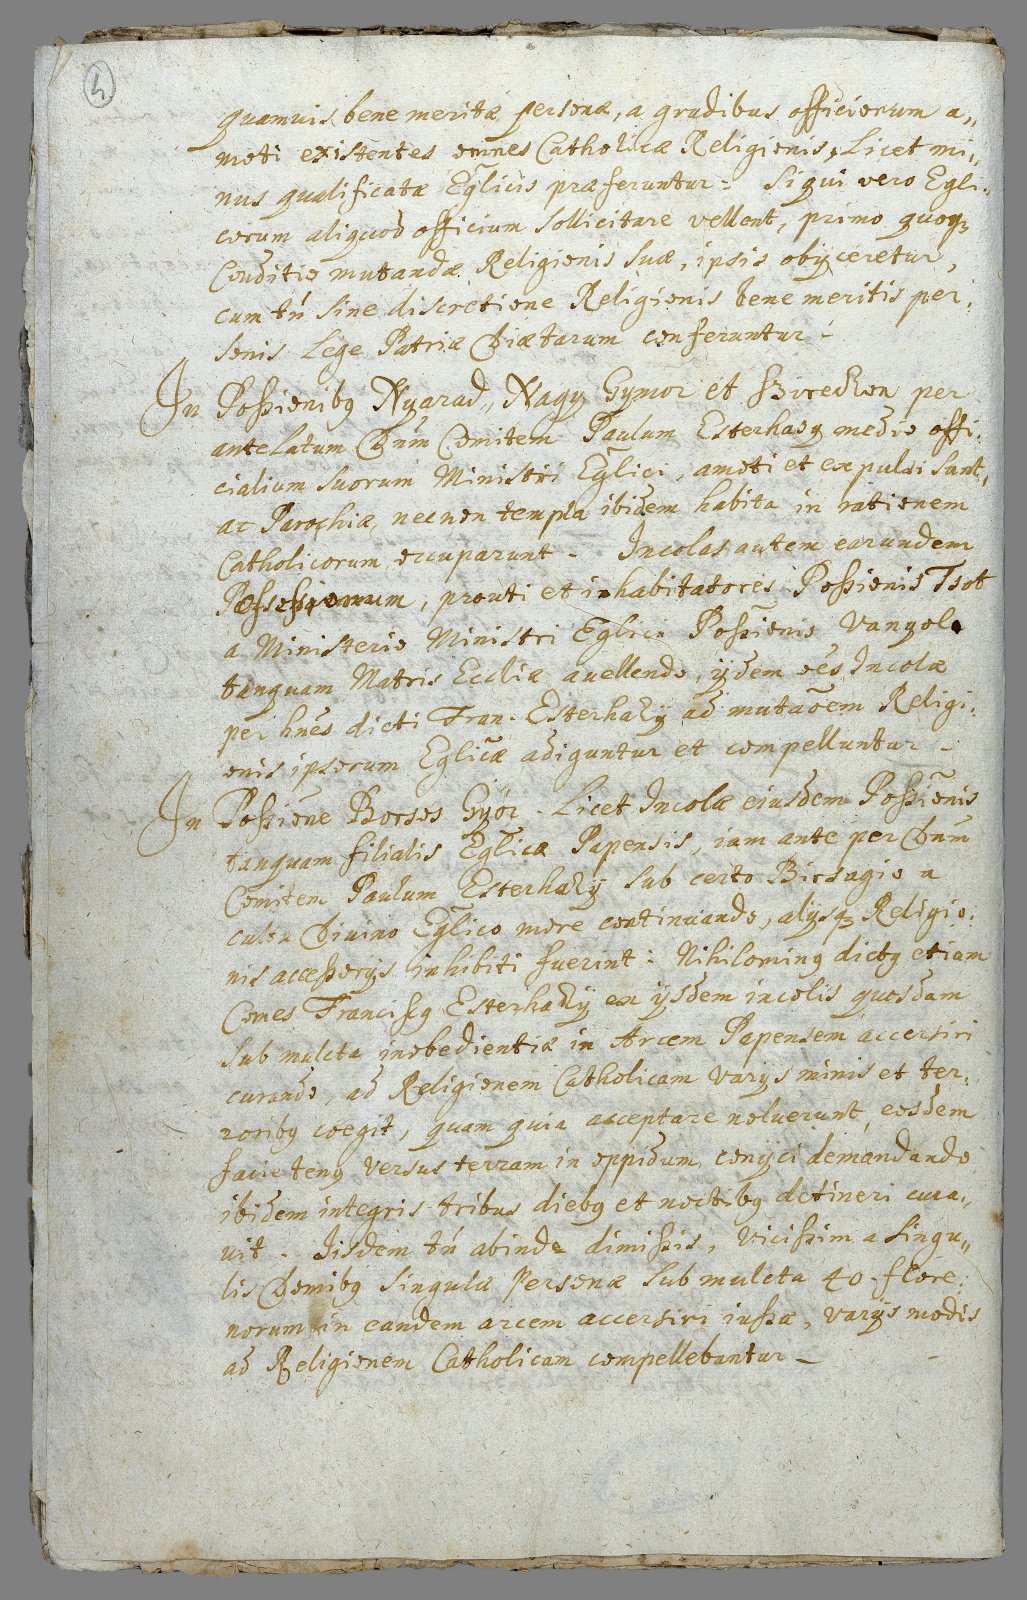 4
quamuis bene meritæ personæ, a gradibus officiorum a„
moti existentes omnes Catholicæ Religionis, Licet mi„
nus qualificatæ Eglicis præferuntur: Si qui vero Egli:
corum aliquod officium sollicitare vellent, primo quoqȝ
Conditio mutandæ Religionis suæ, ipsis obijceretur,
cum tn̄ sine discretione Religionis bene meritis per:
sonis Lege Patriæ Diætarum conferuntur -
In Poßionibꝰ Nyarad, Nagy Gymor et per
antelatum Dn̄m Comitem Paulum Esterhasy medio offi:
cialium suorum Ministri Eg̃lici, amoti et expulsi sunt,
ac Parochiæ, necnon templa ibidem habita in rationem
Catholicorum occuparunt - Incolas autem earundem
Possessionum, prouti et inhabitatores Poßionis Tsot
a Ministerio Ministri Eg̃lici Poßionis Vanyola
tanquam Matris Eccliæ auellendo, ijdem oẽs Incolæ
per hn̄es dicti Fran. Esterhazy ad mutaõem Religi:
onis ipsorum Eglicæ adiguntur et compelluntur -
In Poßione Borsos Győr - Licet Incolæ eiusdem Poßionis
tanquam filialis Eg̃licæ Papensis, iam ante per Dn̄m
Comitem Paulum Esterhazy sub certo Birsagio a
cultu Diuino Eg̃lico more continuando, alijsqȝ Religio:
nis acceßorijs inhibiti fuerint: Nihilominꝰ dictꝰ etiam
Comes Francißꝰ Esterhazy ex ijsdem incolis quosdam
sub mulcta inobedientiæ in Arcem Papensem accersiri
curando, ad Religionem Catholicam varijs minis et ter:
roribꝰ coegit, quam quia acceptare noluerunt, eosdem
facie tenꝰ versus terram in oppidum conijci demandando
ibidem integris tribus diebꝰ et noctibꝰ detineri cura„
uit. Iisdem tn̄ abinde dimißis, vicißim a singu„
lis Domibꝰ singulæ Personæ sub mulcta 40. flore:
norum in eandem arcem accersiri iußæ, varijs modis
ad Religionem Catholicam compellebantur -